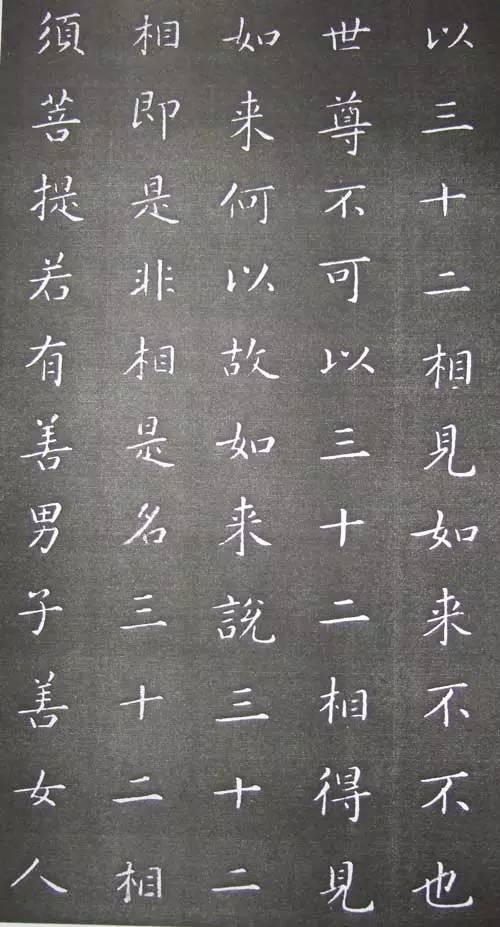 以三十二相見如来不不也
世尊不可以三十二相得見
如来何以故如来説三十二
相即是非相是名三十二相
須菩提若有善男子善女人